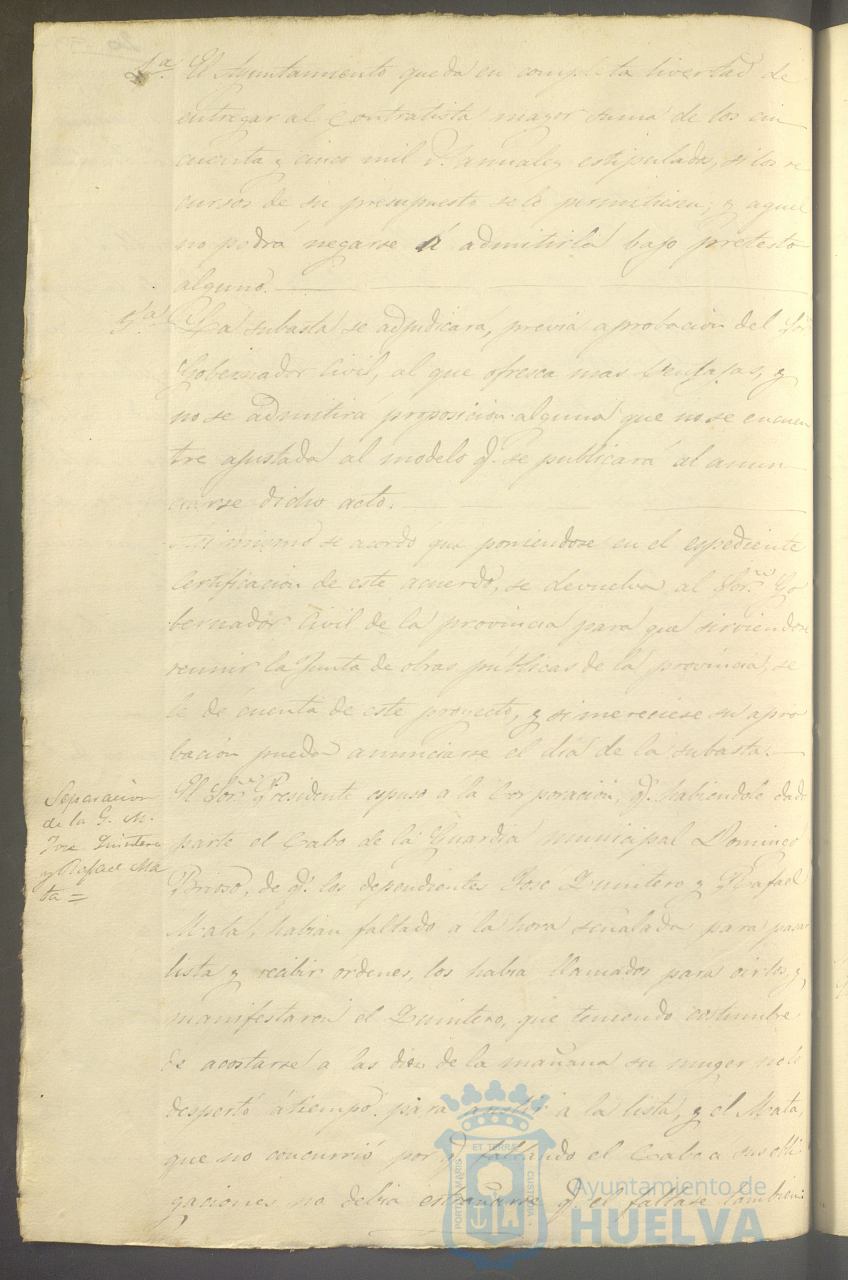 4.ª El Ayuntamiento queda en completa livertad de
entregar al Contratista mayor suma de los cin
cuenta y cinco mil r.ˢ anuales estipulados, si los re
cursos de su presupuesto se lo permitiesen; y aquel
no podrá negarse á admitirla bajo pretesto
alguno.
5.ª La subasta se adjudicará, previa aprobacion del Sor
Gobernador Civil, al que ofresca mas ventajas, y
no se admitirá proposicion alguna que no se encuen
tre ajustada al modelo q.ᵉ se publicará al anun
ciarse dicho acto.
Asi mismo se acordó que poniendose en el espediente
certificacion de este acuerdo, se devuelva al Sor. Go
bernador Civil de la provincia para que sirviendose
reunir la Junta de obras públicas de la provincia, se
le dé cuenta de este proyecto, y si mereciese su apro
bacion pueda anunciarse el dia de la subasta.
Separacion
de la G. M.
Jose Quintero
y Rafael Ma
ta =
El Sor. Presidente espuso á la Corporacion, q.ᵉ habiendole dado
parte el Cabo de la Guardia municipal Domingo
Brioso, de q.ᵉ los dependientes José Quintero y Rafael
Mata, habian faltado a la hora señalada para pasar
lista y recibir ordenes, los habia llamados para oirlos, y
manifestaron el Quintero, que teniendo costumbre
de acostarse a las diez de la mañana su muger no le
despertó á tiempo para asistir a la lista, y el Mata,
que no concurrió por q.ᵉ faltando el Cabo a sus obli
gaciones no debia estrañarse q.ᵉ el faltase tambien.
PORTUS MARIS
ET TERRE
CUSTODIA
Ayuntamiento de
HUELVA